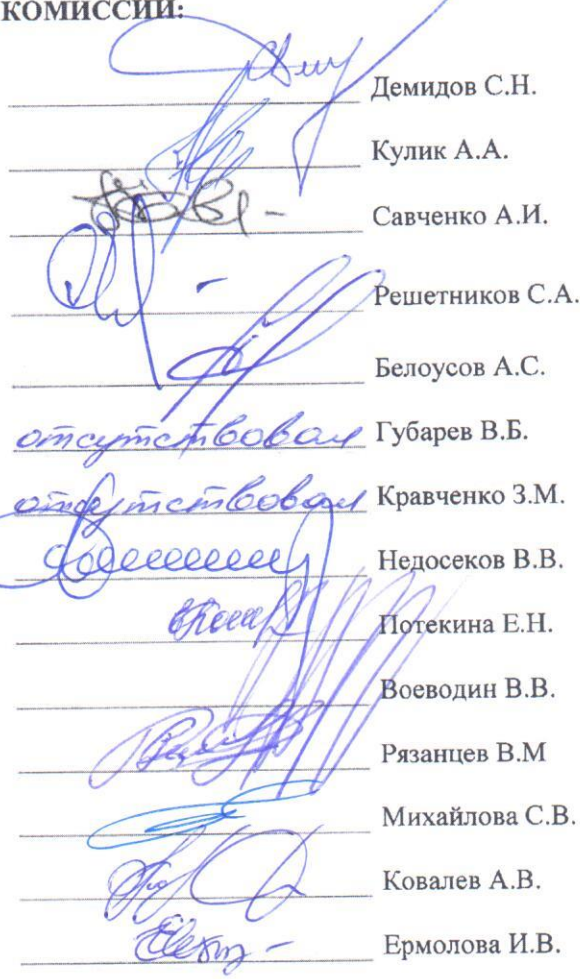 КОМИССИИ:
Демидов С.Н.
Кулик А.А.
Савченко А.И.
Решетников С.А.
Белоусов А.С.
отсутствовал Губарев В.Б.
отсутствовал Кравченко З.М.
Недосеков В.В.
Потекина Е.Н.
Воеводин В.В.
Рязанцев В.М
Михайлова С.В.
Ковалев А.В.
Ермолова И.В.